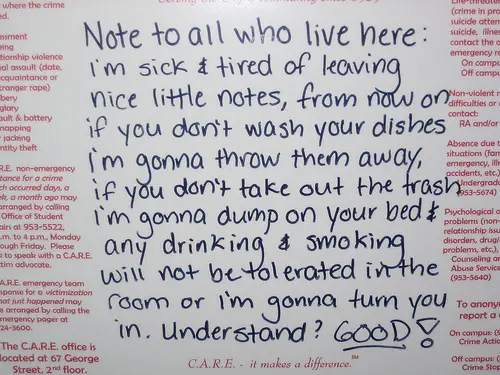 Serving the
where the crime
Note to all who live here:
i'm sick & tired of leaving
nice little notes, from now on
if you don't wash your dishes
i'm gonna throw them away,
if you don't take out the trash
i'm gonna dump on your bed &
any drinking & smoking
will not be tolerated in the
room or i'm gonna turn you
in. Understand? GOOD!
C.A.R.E. - it makes a difference.℠
ssment
ing
tionship violence
al assault (date,
cquaintance or
tranger rape)
bery
glary
ault & battery
napping
jacking
ntity theft
.R.E. non-emergency
tance for a crime
ch occurred days, a
k, a month ago may
arranged by calling
Office of Student
airs at 953-5522,
.m. to 4 p.m., Monday
ough Friday. Please
to speak with a C.A.R.E.
tim advocate.
.A.R.E. emergency team
sponse for a victimization
hat just happened may
e arranged by calling the
mergency pager at
24-3600.
The C.A.R.E. office is
located at 67 George
Street, 2nd floor.
Life-threate
(crime in pro
suicide attem
suicide, illnes
contact the
emergency re
On campu
Off campu
Non-violent
difficulties or
contact:
RA and/or
Absence due t
situations (fam
emergency, illn
accidents, etc.)
Undergrad
(953-5674)
Psychological o
problems (non-
relationship issu
disorders, drug/
problems, etc.)
Counseling an
Abuse Service
(953-5640)
To anony
report a
On campus: (5
Crime Actio
Off campus: (5
Crime Stop